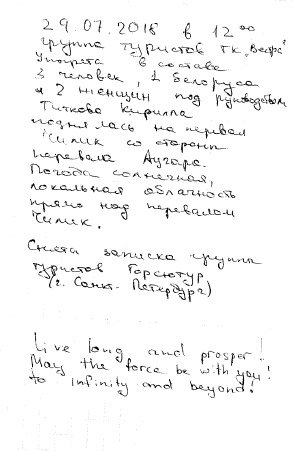 29.07.2018 в 12⁰⁰
группа туристов ТК „Вестра"
в составе
3 человек, 1 белоруса
и 2 женщин под руководством
Титкова Кирилла
поднялась на перевал
Чилик со стороны
перевала
Погода солнечная,
локальная облачность
прямо над перевалом
Чилик.
Снята записка группы
туристов Горсютур
(г. Санкт-Петербург)
Live long and prosper!
May the force be with you!
to infinity and beyond!